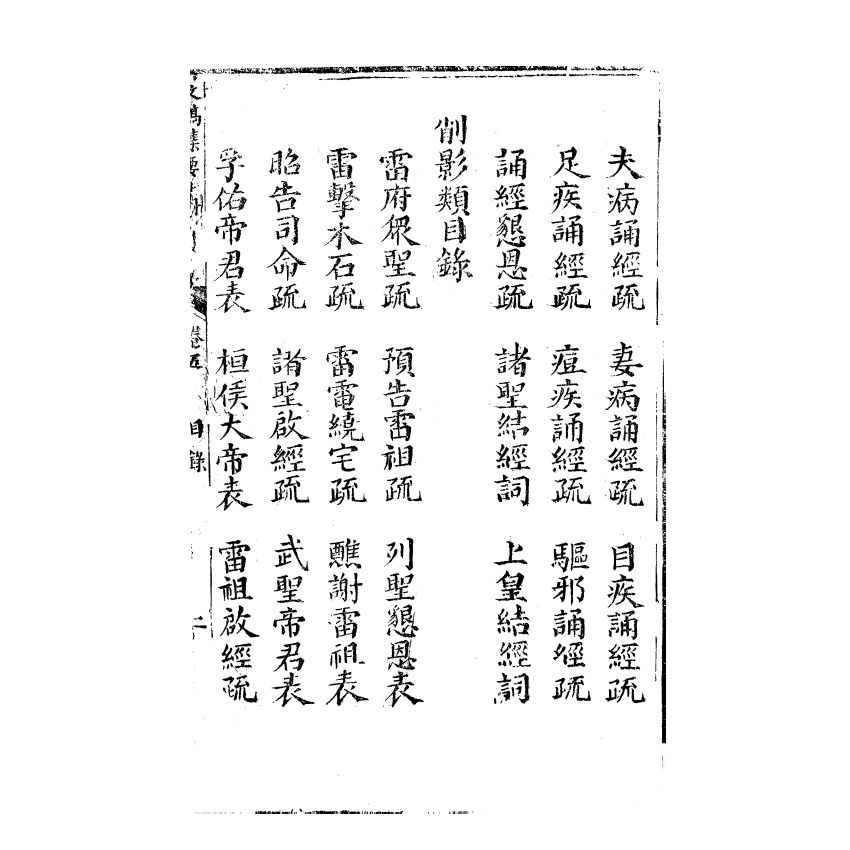 夫病誦經疏　妻病誦經疏　目疾誦經疏
足疾誦經疏　痘疾誦經疏　驅邪誦經疏
誦經懇恩疏　諸聖結經詞　上皇結經詞
削影類目錄
雷府眾聖疏　預告雷祖疏　列聖懇恩表
雷擊木石疏　雷電繞宅疏　醮謝雷祖表
昭告司命疏　諸聖啟經疏　武聖帝君表
孚佑帝君表　桓侯大帝表　雷祖啟經疏
文集要　卷五　目錄　二